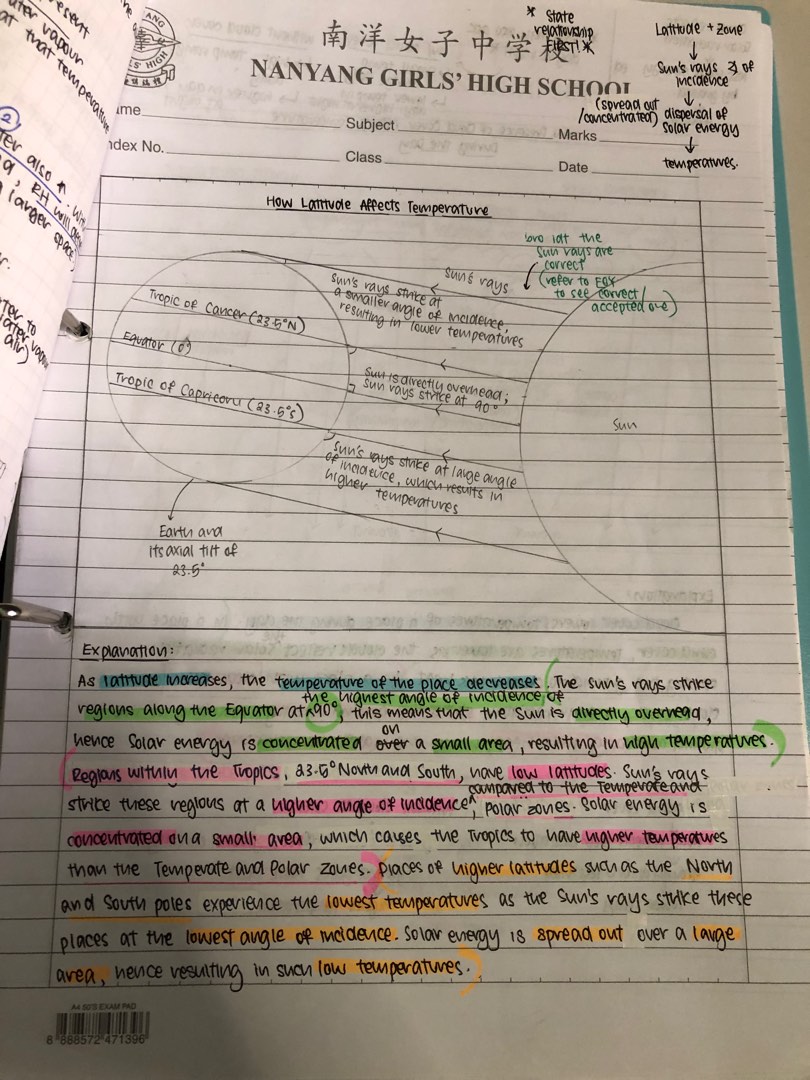 resent
ater vapour
at that temperature
2
ter also ↑. Wi
RH will
larger space,
r.
ter to
water vapo
air)
南洋女子中学校
NANYANG GIRLS' HIGH SCHOOL
* State
relationship
FIRST! *
Latitude + zone
↓
Sun's rays ∠ of
incidence
↓
(spread out
/concentrated) dispersal of
solar energy
↓
temperatures.
ame
Subject
Marks
ndex No.
Class
Date
How Latitude Affects Temperature
bro idt the
sun rays are
correct
(refer to
to see correct/
accepted one)
sun's rays
sun's rays strike at
a smaller angle of incidence,
resulting in lower temperatures
Tropic of Cancer (23.5°N)
Equator (0°)
Sun is directly overhead;
sun rays strike at 90°
Tropic of Capricorn (23.5°S)
Sun
Sun's rays strike at large angle
of incidence, which results in
higher temperatures
Earth and
its axial tilt of
23.5°
Explanation:
As latitude increases, the temperature of the place decreases. (The sun's rays strike
the highest angle of incidence of
regions along the Equator at ^ 90°, this means that the Sun is directly overhead,
on
hence solar energy is concentrated over a small area, resulting in high temperatures.)
(Regions within the Tropics, 23.5° North and South, have low latitudes. Sun's rays
compared to the Temperate and
strike these regions at a higher angle of incidence ^, Polar zones. Solar energy is
concentrated on a small area, which causes the Tropics to have higher temperatures
than the Temperate and Polar zones.) (Places of higher latitudes such as the North
and South poles experience the lowest temperatures as the Sun's rays strike these
places at the lowest angle of incidence. Solar energy is spread out over a large
area, hence resulting in such low temperatures.)
A4 50'S EXAM PAD
8 888572 471396